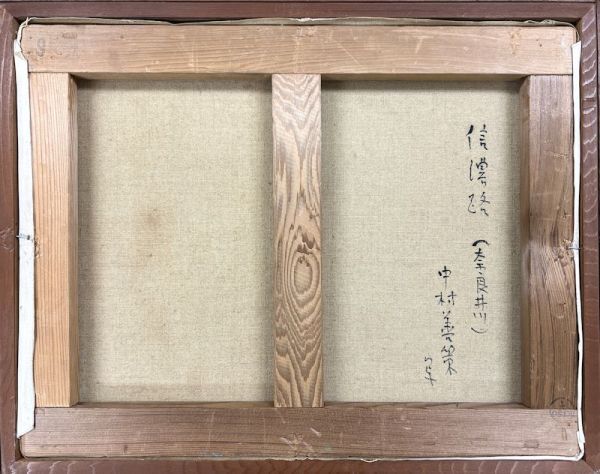 信濃路
（奈良井川）
中村善策